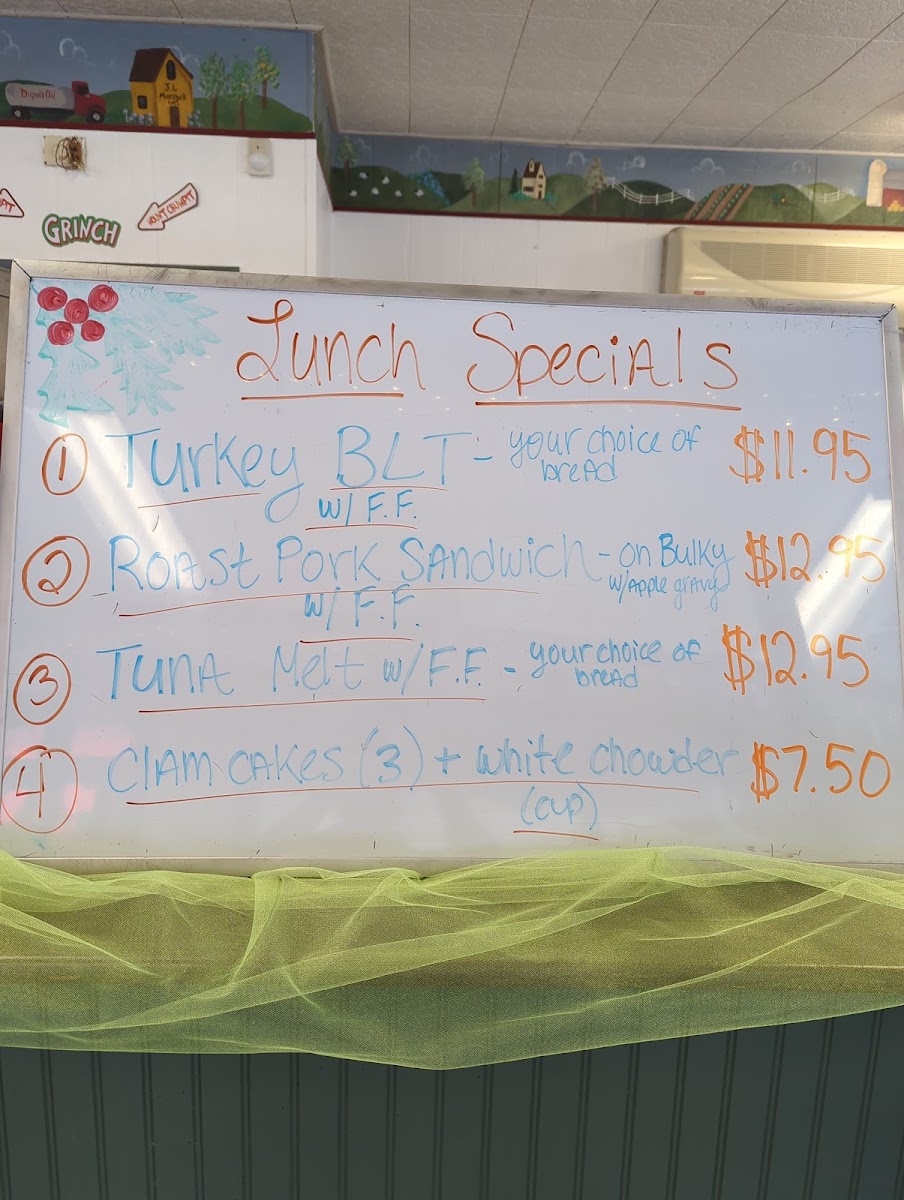 Dupuis Oil
J.L
GRINCH
Lunch Specials
1 Turkey BLT - your choice of bread $11.95
w/ F.F.
2 Roast Pork Sandwich - on Bulky $12.95
w/ Apple gravy
w/ F.F.
3 Tuna Melt w/ F.F. - your choice of bread $12.95
4 Clam cakes (3) + white chowder $7.50
(cup)